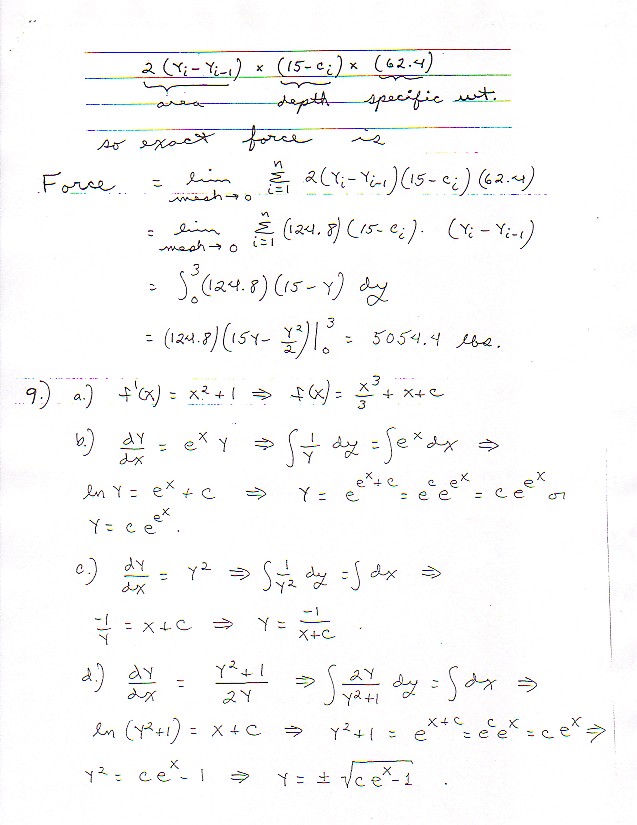 2 (Yᵢ - Yᵢ₋₁) × (15 - cᵢ) × (62.4)
area depth specific wt.
so exact force is
Force = lim_{mesh→0} Σ_{i=1}^{n} 2(Yᵢ - Yᵢ₋₁)(15 - cᵢ)(62.4)
= lim_{mesh→0} Σ_{i=1}^{n} (124.8)(15 - cᵢ) · (Yᵢ - Yᵢ₋₁)
= ∫₀³ (124.8)(15 - Y) dy
= (124.8)(15Y - Y²/2)|₀³ = 5054.4 lbs.
9.) a.) f'(x) = x² + 1 ⇒ f(x) = x³/3 + x + c
b.) dY/dx = eˣ Y ⇒ ∫ 1/Y dy = ∫ eˣ dx ⇒
ln Y = eˣ + c ⇒ Y = e^{eˣ + c} = e^c e^{eˣ} = c e^{eˣ} or
Y = c e^{eˣ}.
c.) dY/dx = Y² ⇒ ∫ 1/Y² dy = ∫ dx ⇒
-1/Y = x + c ⇒ Y = -1/(x + c) .
d.) dY/dx = (Y² + 1)/(2Y) ⇒ ∫ 2Y/(Y² + 1) dy = ∫ dx ⇒
ln (Y² + 1) = x + c ⇒ Y² + 1 = e^{x + c} = e^c eˣ = c eˣ ⇒
Y² = c eˣ - 1 ⇒ Y = ± √(c eˣ - 1) .